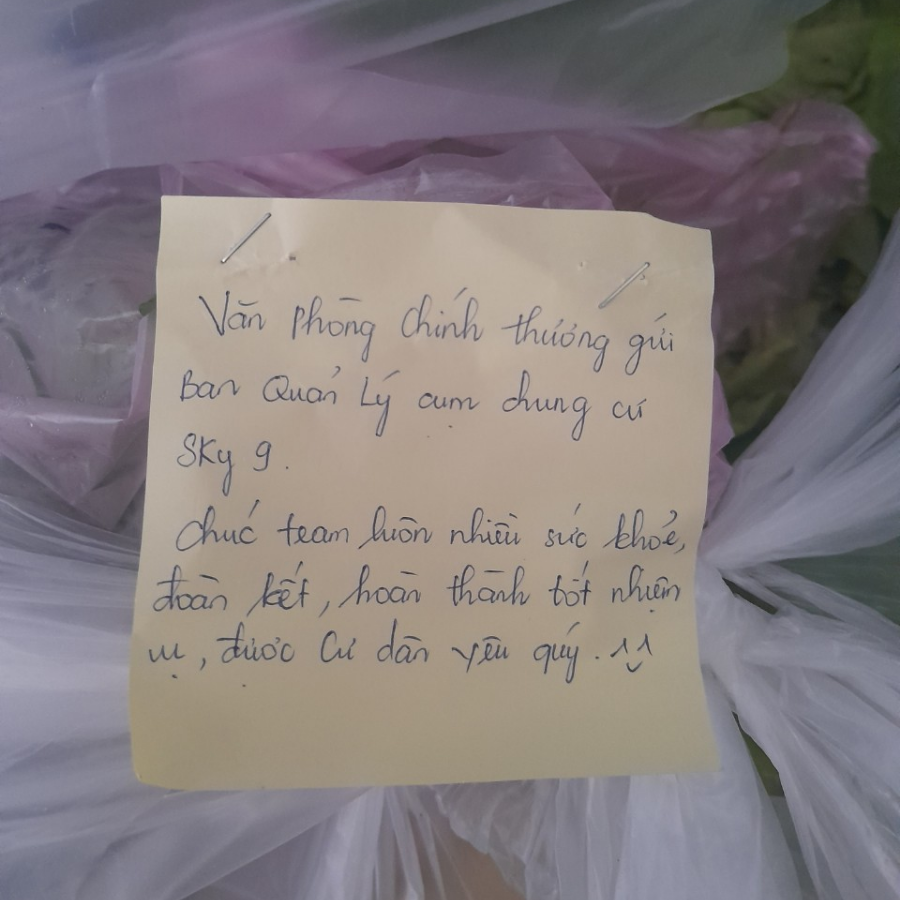 Văn phòng Chính thương gửi
Ban Quản Lý cụm chung cư
Sky 9.
Chúc team luôn nhiều sức khỏe,
đoàn kết, hoàn thành tốt nhiệm
vụ, được Cư dân yêu quý. ^^